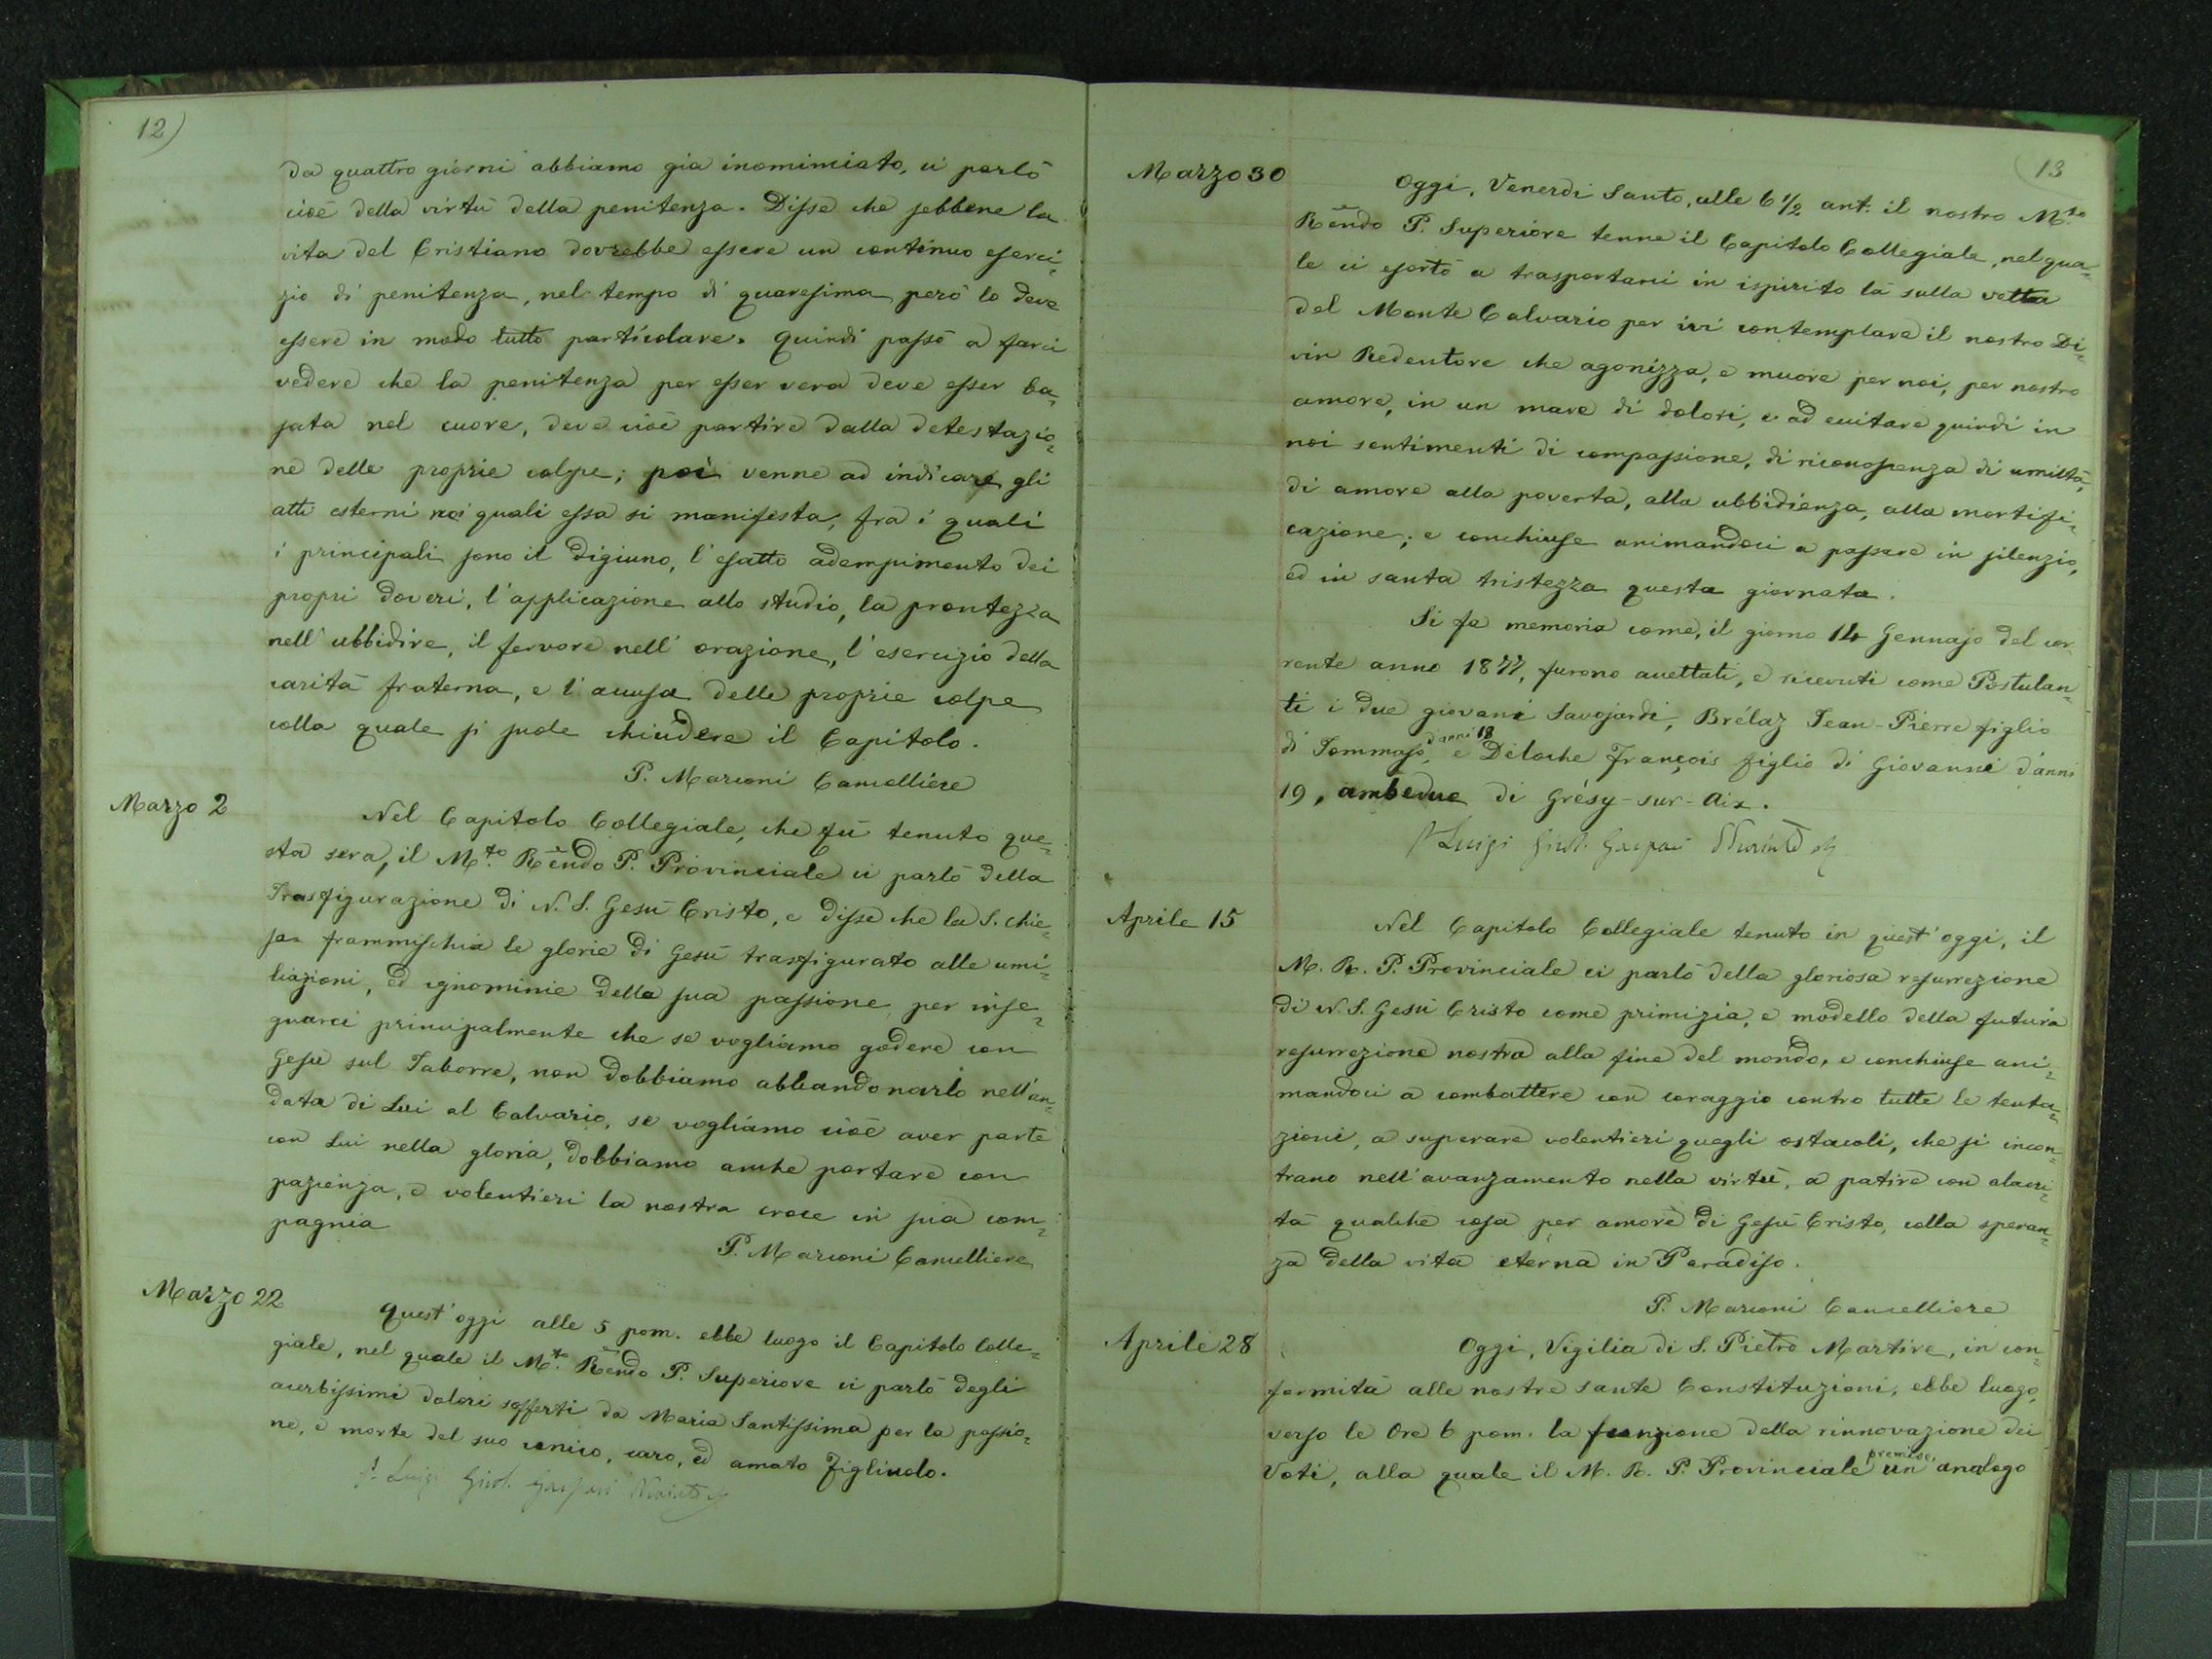 12)
da quattro giorni abbiamo gia incominciato, ci parlò
cioè della virtù della penitenza. Disse che sebbene la
vita del Cristiano dovrebbe essere un continuo eserci=
zio di penitenza, nel tempo di quaresima però lo deve
essere in modo tutto particolare. Quindi passò a farci
vedere che la penitenza per esser vera deve esser ba=
sata nel cuore, deve cioè partire dalla detestazio=
ne delle proprie colpe; poi venne ad indicare gli
atti esterni nei quali essa si manifesta, fra i quali
i principali sono il digiuno, l'esatto adempimento dei
propri doveri, l'applicazione allo studio, la prontezza
nell'ubbidire, il fervore nell'orazione, l'esercizio della
carità fraterna, e l'accusa delle proprie colpe
colla quale si suole chiudere il Capitolo.
P. Marconi Cancelliere
Marzo 2
Nel Capitolo Collegiale, che fù tenuto que=
sta sera, il M.to Rendo P. Provinciale ci parlò della
Trasfigurazione di N. S. Gesù Cristo, e disse che la S. Chie=
sa frammischia le glorie di Gesù trasfigurato alle umi=
liazioni, ed ignominie della sua passione, per inse=
gnarci principalmente che se vogliamo godere con
Gesù sul Taborre, non dobbiamo abbandonarlo nell'an=
data di Lui al Calvario, se vogliamo cioè aver parte
con Lui nella gloria, dobbiamo anche portare con
pazienza, e volentieri la nostra croce in sua com=
pagnia
P. Marconi Cancelliere
Marzo 22
Quest'oggi alle 5 pom. ebbe luogo il Capitolo Colle=
giale, nel quale il M.to Rendo P. Superiore ci parlò degli
acerbissimi dolori sofferti da Maria Santissima per la passio=
ne, e morte del suo unico, caro, ed amato Figliuolo.
P. Luigi Girol. Gaspari
13
Marzo 30
Oggi, Venerdì Santo, alle 6 1/2 ant. il nostro M.to
Rendo P. Superiore tenne il Capitolo Collegiale, nel qua=
le ci esortò a trasportarci in ispirito là sulla vetta
del Monte Calvario per ivi contemplare il nostro Di=
vin Redentore che agonizza, e muore per noi, per nostro
amore, in un mare di dolori, e ad eccitare quindi in
noi sentimenti di compassione, di riconoscenza di umiltà,
di amore alla povertà, alla ubbidienza, alla mortifi=
cazione; e conchiuse animandoci a passare in silenzio,
ed in santa tristezza questa giornata.
Si fa memoria come, il giorno 14 Gennajo del cor=
rente anno 1877, furono accettati, e ricevuti come Postulan=
ti i due giovani Savojardi, Brélaz Jean-Pierre figlio
di Tommaso, d'anni 18 e Deloche François figlio di Giovanni d'anni
19, ambedue di Grésy-sur-Aix.
P. Luigi Girol. Gaspari
Aprile 15
Nel Capitolo Collegiale tenuto in quest'oggi, il
M. R. P. Provinciale ci parlò della gloriosa resurrezione
di N. S. Gesù Cristo come primizia, e modello della futura
resurrezione nostra alla fine del mondo, e conchiuse ani=
mandoci a combattere con coraggio contro tutte le tenta=
zioni, a superare volentieri quegli ostacoli, che si incon=
trano nell'avanzamento nella virtù, a patire con alacri=
tà qualche cosa per amore di Gesù Cristo, colla speran=
za della vita eterna in Paradiso.
P. Marconi Cancelliere
Aprile 28
Oggi, Vigilia di S. Pietro Martire, in con=
formità alle nostre sante Constituzioni, ebbe luogo,
verso le Ore 6 pom. la funzione della rinnovazione dei
Voti, alla quale il M. R. P. Provinciale premise, un analogo